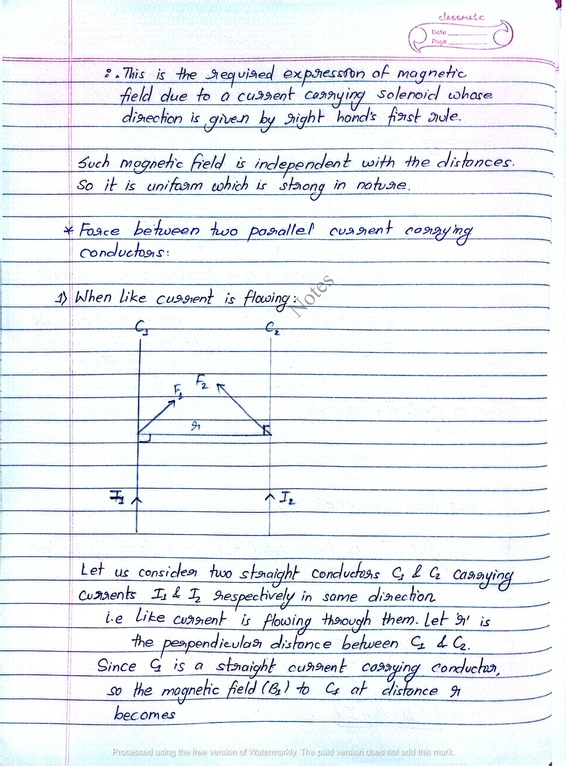 classmate
Date
Page
∴ This is the required expression of magnetic
field due to a current carrying solenoid whose
direction is given by right hand's first rule.
Such magnetic field is independent with the distances.
So it is uniform which is strong in nature.
* Force between two parallel current carrying
conductors:
1) When like current is flowing:
Notes
C₁ C₂
F₁ F₂
r
I₁ I₂
Let us consider two straight conductors C₁ & C₂ carrying
currents I₁ & I₂ respectively in same direction
i.e like current is flowing through them. Let 'r' is
the perpendicular distance between C₁ & C₂.
Since C₁ is a straight current carrying conductor,
so the magnetic field (B₁) to C₁ at distance r
becomes
Processed using the free version of Watermarkly. The paid version does not add this mark.